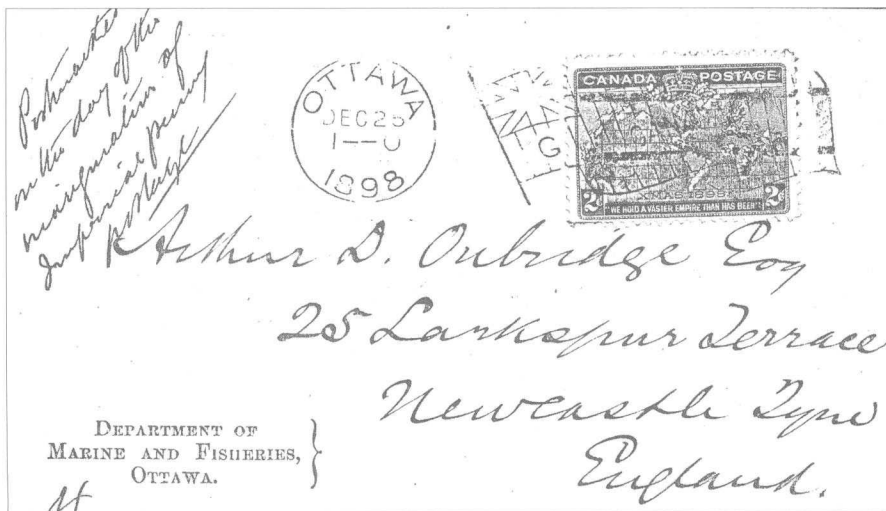 Postmarked
on the day of the
inauguration of
Imperial penny
postage
OTTAWA
DEC 25
1898
CANADA POSTAGE
XMAS 1898
2 2
"WE HOLD A VASTER EMPIRE THAN HAS BEEN"
Arthur D. Esq
25 Larkspur Terrace
Newcastle Tyne
England.
DEPARTMENT OF
MARINE AND FISHERIES,
OTTAWA.